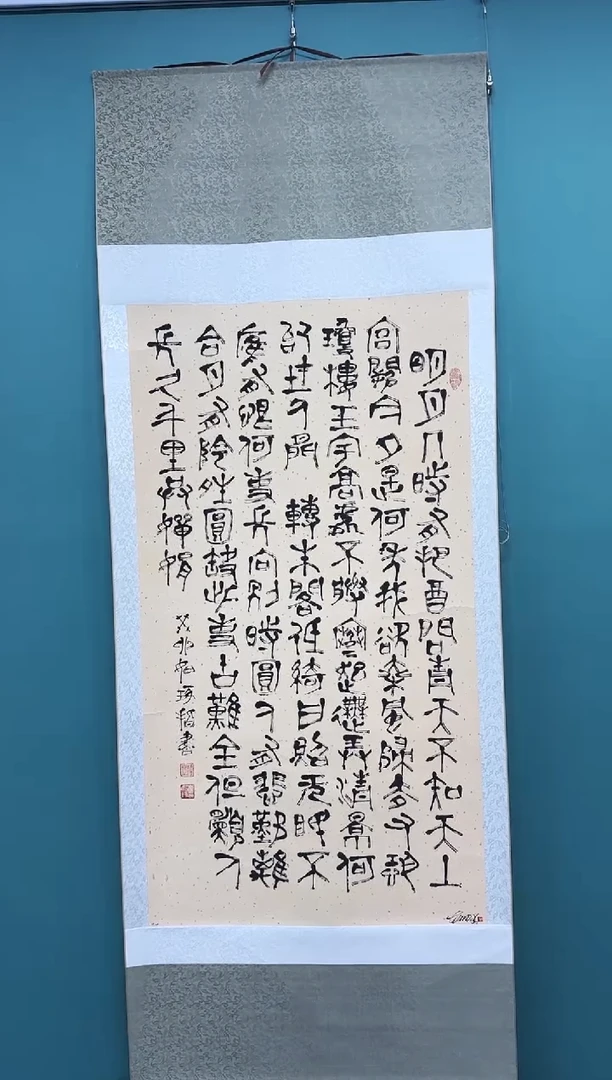 明月几時有把酒問青天不知天上
宮闕今夕是何年我欲乘風歸去又恐
瓊樓玉宇高處不勝寒起舞弄清影何
似在人間 轉朱閣低綺戶照无眠不
應有恨何事長向別時圓人有悲歡離
合月有陰晴圓缺此事古難全但願人
長久千里共嬋娟
書